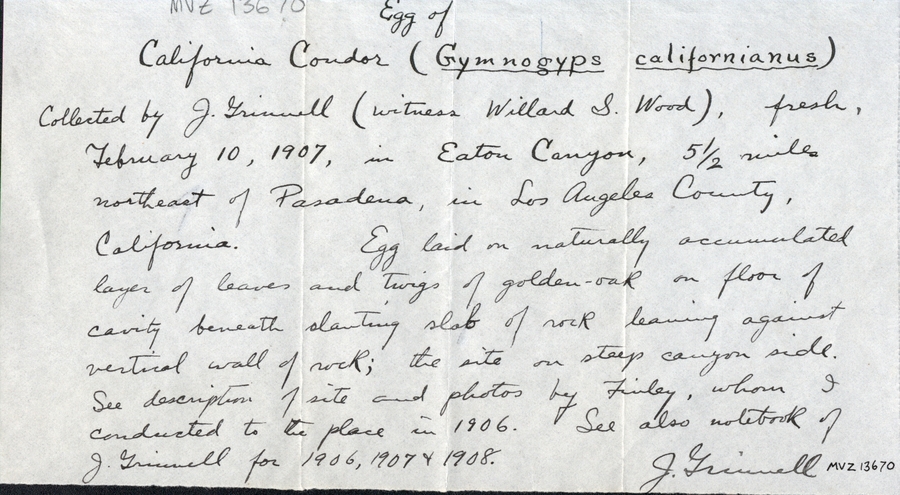 MVZ 13670
Egg of
California Condor (Gymnogyps californianus)
Collected by J. Grinnell (witness Willard S. Wood), fresh,
February 10, 1907, in Eaton Canyon, 5 1/2 miles
northeast of Pasadena, in Los Angeles County,
California. Egg laid on naturally accumulated
layer of leaves and twigs of golden-oak on floor of
cavity beneath slanting slab of rock leaning against
vertical wall of rock; the site on steep canyon side.
See description of site and photos by Finley, whom I
conducted to the place in 1906. See also notebook of
J. Grinnell for 1906, 1907 & 1908.
J. Grinnell MVZ 13670